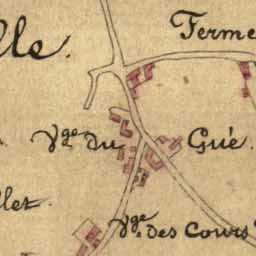 lle.
Ferme
Vge du Gué.
llet.
Vge des Cours